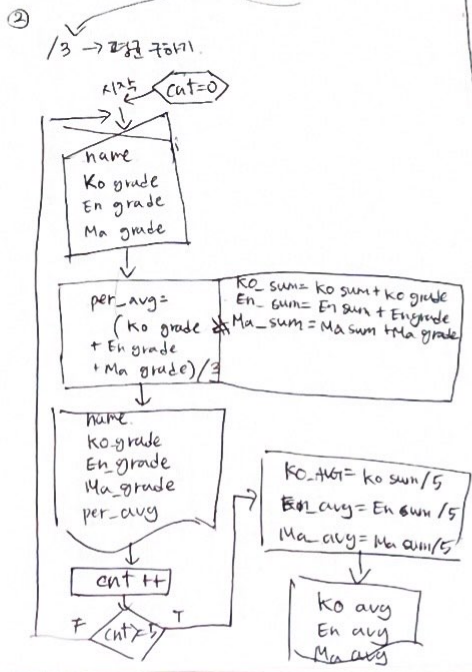 ②
/3 → 평균 구하기.
시작
cnt=0
name
Ko grade
En grade
Ma grade
per_avg=
(Ko grade
+ En grade
+ Ma grade)/3
KO_sum= Ko sum+Ko grade
En_sum= En sum + En grade
Ma_sum= Ma sum +Ma grade
name
KO_grade
En_grade
Ma_grade
per_avg
cnt ++
F
cnt>=5
T
KO_AVG= Ko sum/5
En_avg= En sum /5
Ma_avg= Ma sum/5
Ko avg
En avg
Ma avg